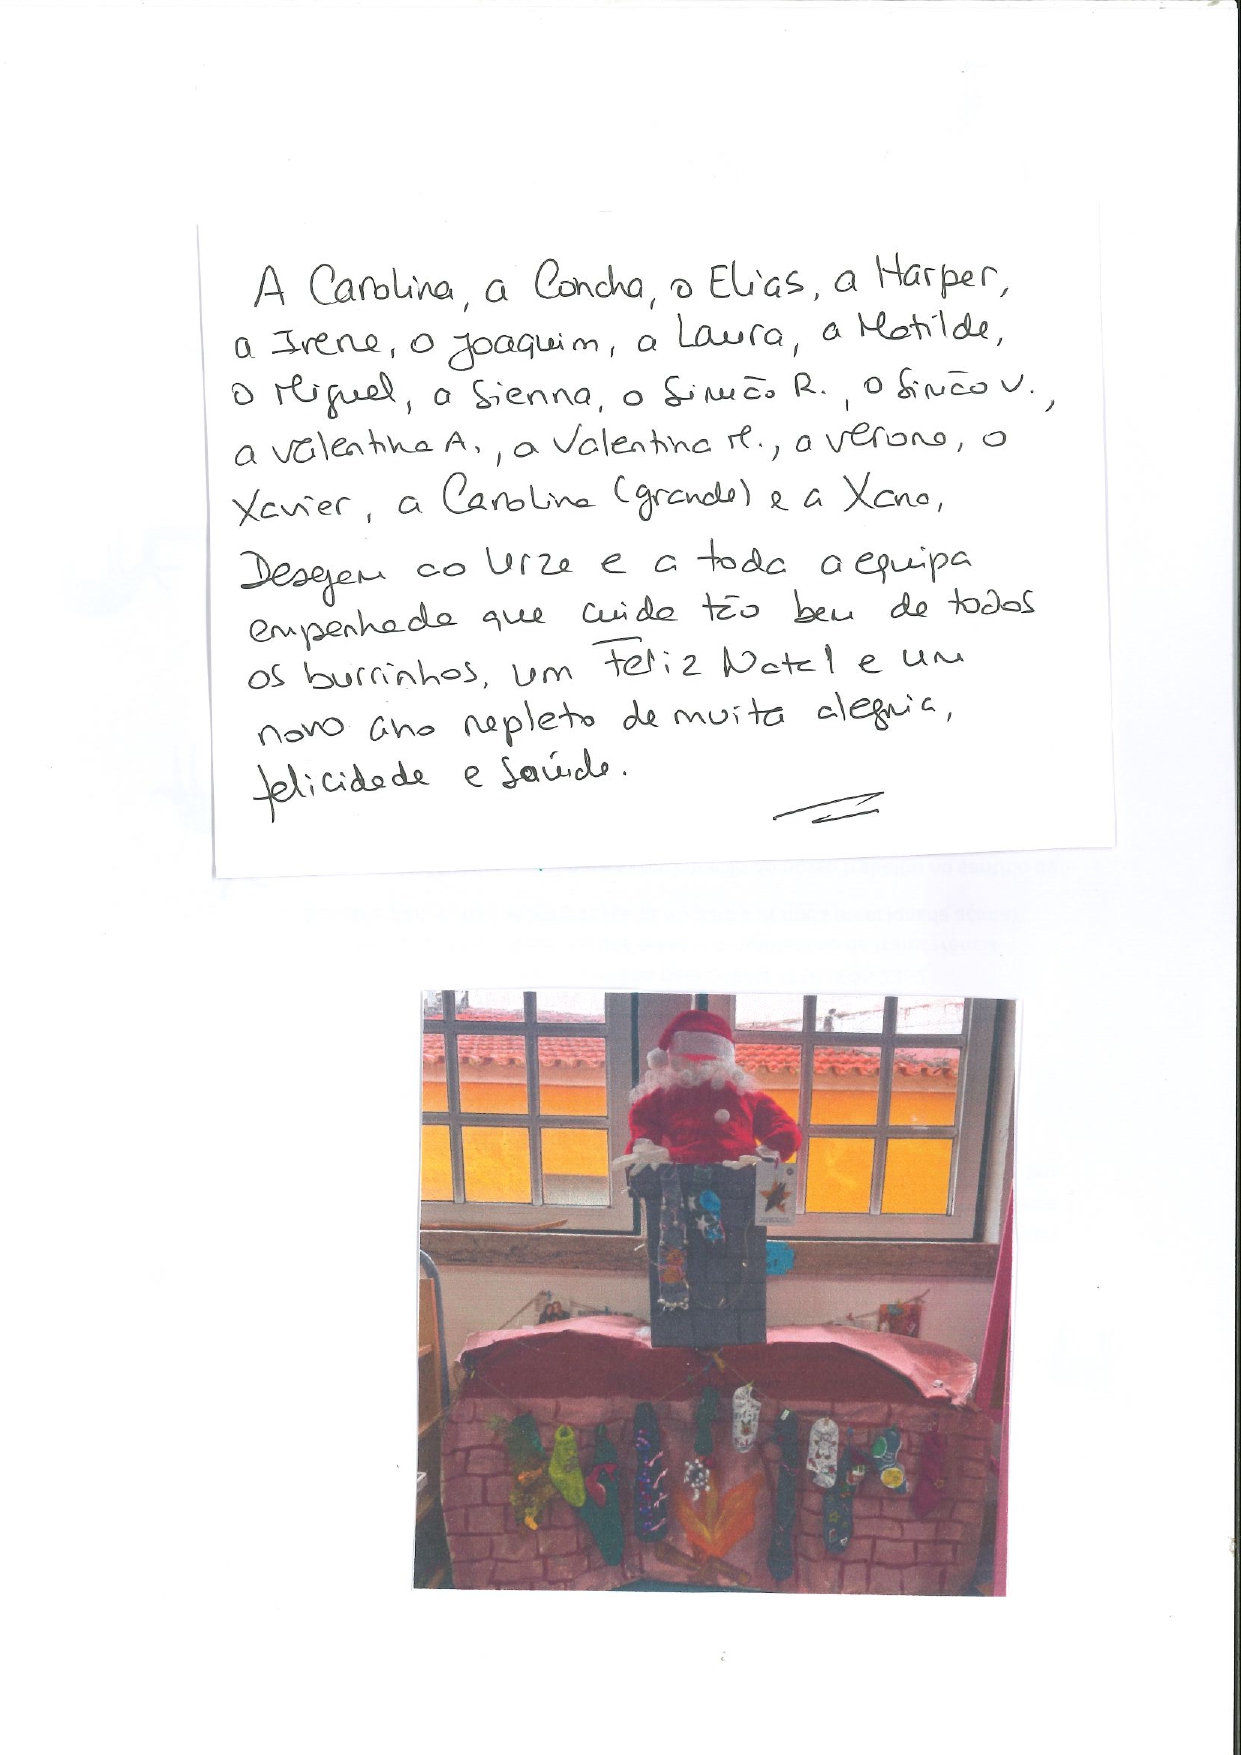 A Carolina, a Concha, o Elias, a Harper,
a Irene, o Joaquim, a Laura, a Matilde,
o Miguel, a Sienna, o Simão R., o Simão V.,
a Valentina A., a Valentina M., a Verona, o
Xavier, a Carolina (grande) e a Xana,
Desejam ao Urze e a toda a equipa
empenhada que cuida tão bem de todos
os burrinhos, um Feliz Natal e um
novo ano repleto de muita alegria,
felicidade e saúde.